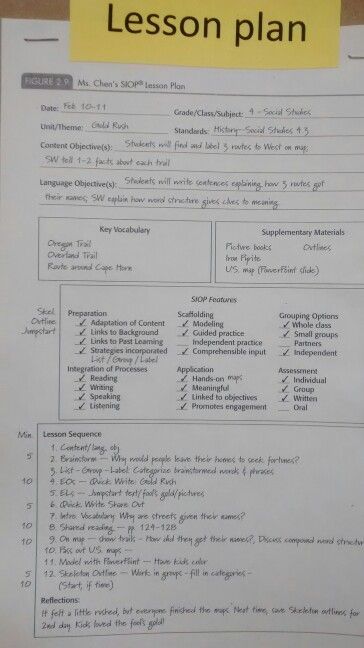 Lesson plan
FIGURE 2.9 Ms. Chen's SIOP® Lesson Plan
Date: Feb 10-11
Grade/Class/Subject: 4 - Social Studies
Unit/Theme: Gold Rush
Standards: History-Social Studies 4.3
Content Objective(s): Students will find and label 3 routes to West on map;
SW tell 1-2 facts about each trail
Language Objective(s): Students will write sentences explaining how 3 routes got
their names; SW explain how word structure gives clues to meaning.
Key Vocabulary
Oregon Trail
Overland Trail
Route around Cape Horn
Supplementary Materials
Picture books Outlines
Iron Pyrite
U.S. map (PowerPoint slide)
SIOP Features
Skel.
Outline
Jumpstart
Preparation
✓ Adaptation of Content
✓ Links to Background
✓ Links to Past Learning
✓ Strategies incorporated
List / Group / Label
Scaffolding
✓ Modeling
✓ Guided practice
Independent practice
✓ Comprehensible input
Grouping Options
✓ Whole class
✓ Small groups
Partners
✓ Independent
Integration of Processes
✓ Reading
✓ Writing
✓ Speaking
✓ Listening
Application
✓ Hands-on maps
✓ Meaningful
✓ Linked to objectives
✓ Promotes engagement
Assessment
✓ Individual
✓ Group
✓ Written
Oral
Min. Lesson Sequence
1. Content/lang. obj.
5 2. Brainstorm — Why would people leave their homes to seek fortunes?
3. List - Group - Label: Categorize brainstormed words & phrases
10 4. EOs — Quick Write: Gold Rush
5. ELs — Jumpstart text/fool's gold/pictures
5 6. Quick Write Share Out
7. Intro. Vocabulary: Why are streets given their names?
10 8. Shared reading — pp. 124-128
10 9. On map — show trails - How did they get their names?, Discuss compound word
10. Pass out U.S. maps —
11. Model with PowerPoint — Have kids color
5 12. Skeleton Outline — Work in groups - fill in categories -
10 (Start, if time)
Reflections:
It felt a little rushed, but everyone finished the maps. Next time, save Skeleton outlines for
2nd day. Kids loved the fool's gold!